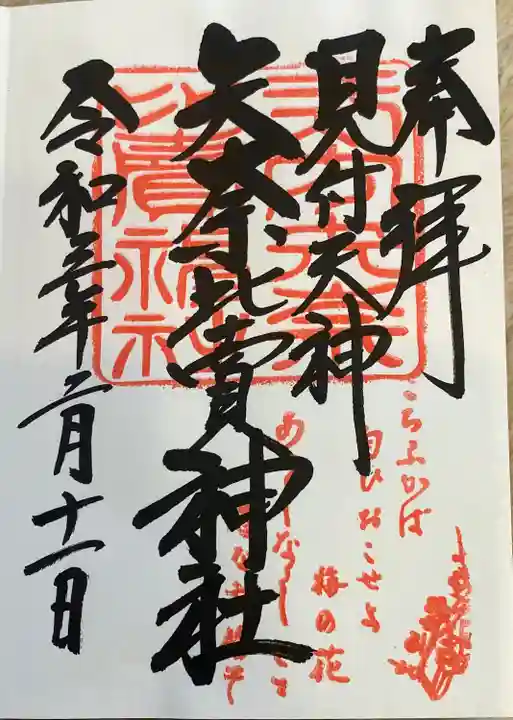 奉拝
見付天神
矢奈比賣神社
令和三年二月十一日
こちふかば
匂ひおこせよ
梅の花
あるじなしとて